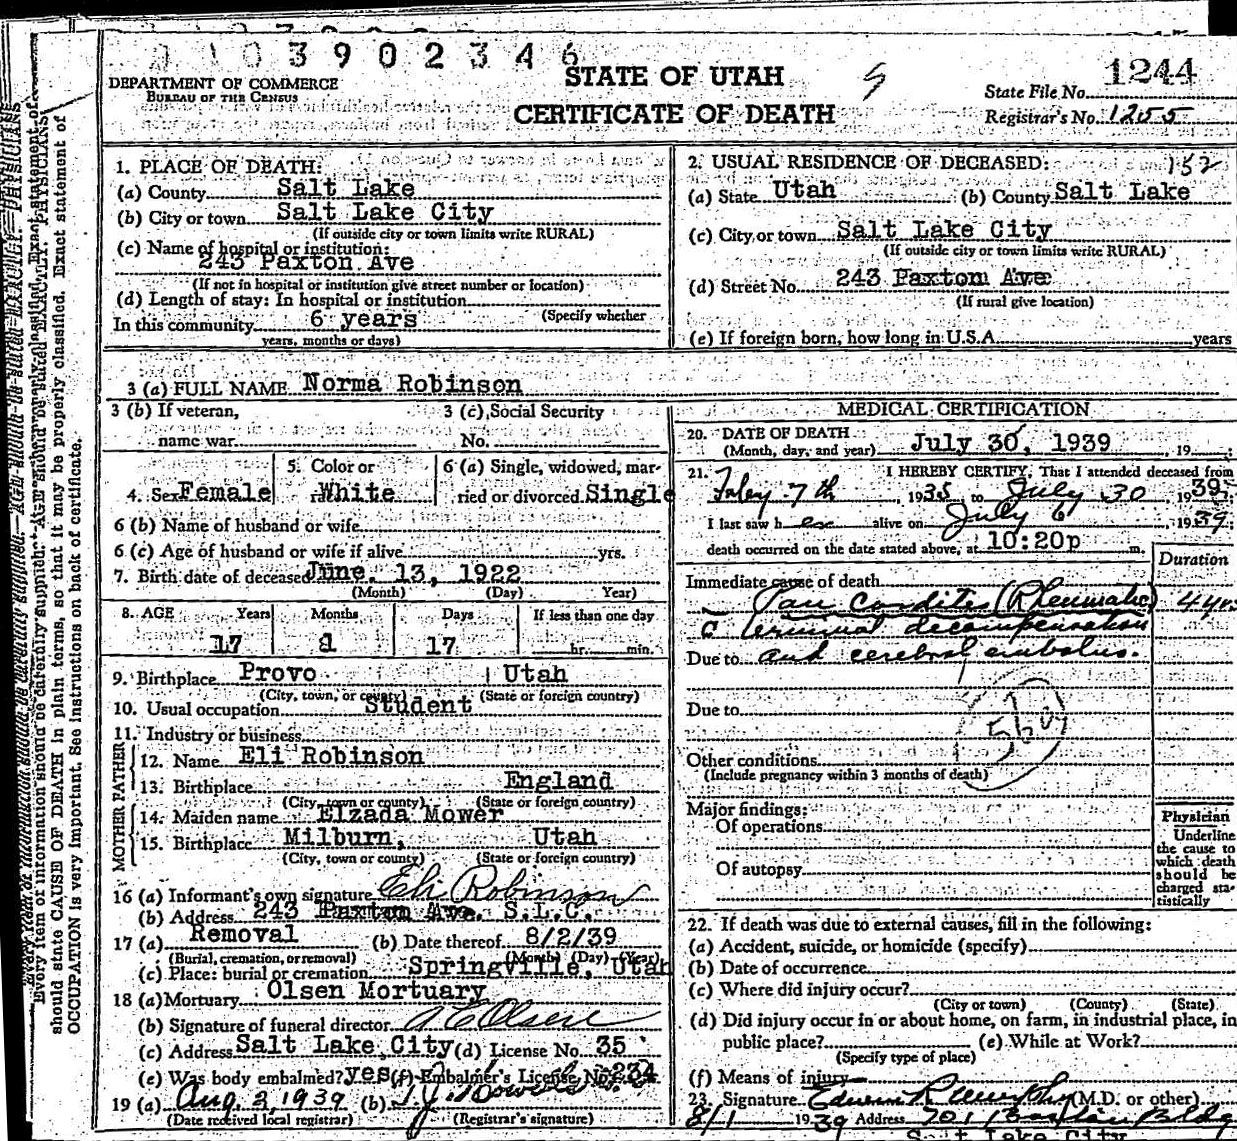 3902346
STATE OF UTAH
CERTIFICATE OF DEATH
DEPARTMENT OF COMMERCE
BUREAU OF THE CENSUS
State File No. 1244
Registrar's No. 1255
1. PLACE OF DEATH:
(a) County Salt Lake
(b) City or town Salt Lake City
(If outside city or town limits write RURAL)
(c) Name of hospital or institution:
243 Paxton Ave
(If not in hospital or institution give street number or location)
(d) Length of stay: In hospital or institution
(Specify whether
In this community 6 years
years, months or days)
2. USUAL RESIDENCE OF DECEASED: 152
(a) State Utah (b) County Salt Lake
(c) City or town Salt Lake City
(If outside city or town limits write RURAL)
(d) Street No. 243 Paxton Ave
(If rural give location)
(e) If foreign born, how long in U.S.A. years
3 (a) FULL NAME Norma Robinson
3 (b) If veteran, name war
3 (c) Social Security No.
4. Sex Female
5. Color or race White
6 (a) Single, widowed, married or divorced Single
6 (b) Name of husband or wife
6 (c) Age of husband or wife if alive yrs.
7. Birth date of deceased June. 13, 1922
(Month) (Day) Year)
8. AGE Years Months Days If less than one day
17 1 17 hr. min.
9. Birthplace Provo Utah
(City, town, or county) (State or foreign country)
10. Usual occupation Student
11. Industry or business
FATHER
12. Name Eli Robinson
13. Birthplace England
(City, town or county) (State or foreign country)
MOTHER
14. Maiden name Elzada Mower
15. Birthplace Milburn, Utah
(City, town or county) (State or foreign country)
16 (a) Informant's own signature Eli Robinson
(b) Address 243 Paxton Ave. S.L.C.
17 (a) Removal (b) Date thereof 8/2/39
(Burial, cremation, or removal) (Month) (Day) (Year)
(c) Place: burial or cremation Springville, Utah
18 (a) Mortuary Olsen Mortuary
(b) Signature of funeral director A E Olsen
(c) Address Salt Lake City (d) License No. 35
(e) Was body embalmed? yes (f) Embalmer's License No. 234
19 (a) Aug. 2, 1939 (b)
(Date received local registrar) (Registrar's signature)
MEDICAL CERTIFICATION
20. DATE OF DEATH July 30, 1939 , 19
(Month, day, and year)
21. I HEREBY CERTIFY, That I attended deceased from
7th , 1935, to July 30 1939;
I last saw her alive on July 6 , 1939;
death occurred on the date stated above, at 10:20p m.
Duration
Immediate cause of death
Pan Carditis (Rheumatic) 4 yrs
c terminal decompensation
Due to and cerebral embolus.
Due to
Other conditions
(Include pregnancy within 3 months of death)
Major findings:
Of operations
Of autopsy
Physician
Underline
the cause to
which death
should be
charged sta-
tistically
22. If death was due to external causes, fill in the following:
(a) Accident, suicide, or homicide (specify)
(b) Date of occurrence
(c) Where did injury occur?
(City or town) (County) (State)
(d) Did injury occur in or about home, on farm, in industrial place, in
public place? (e) While at Work?
(Specify type of place)
(f) Means of injury
23. Signature (M.D. or other)
8/1 1939 Address 701 Boston Bldg
Salt Lake City
should state CAUSE OF DEATH in plain terms, so that it may be properly classified. Exact statement of
OCCUPATION is very important. See instructions on back of certificate.